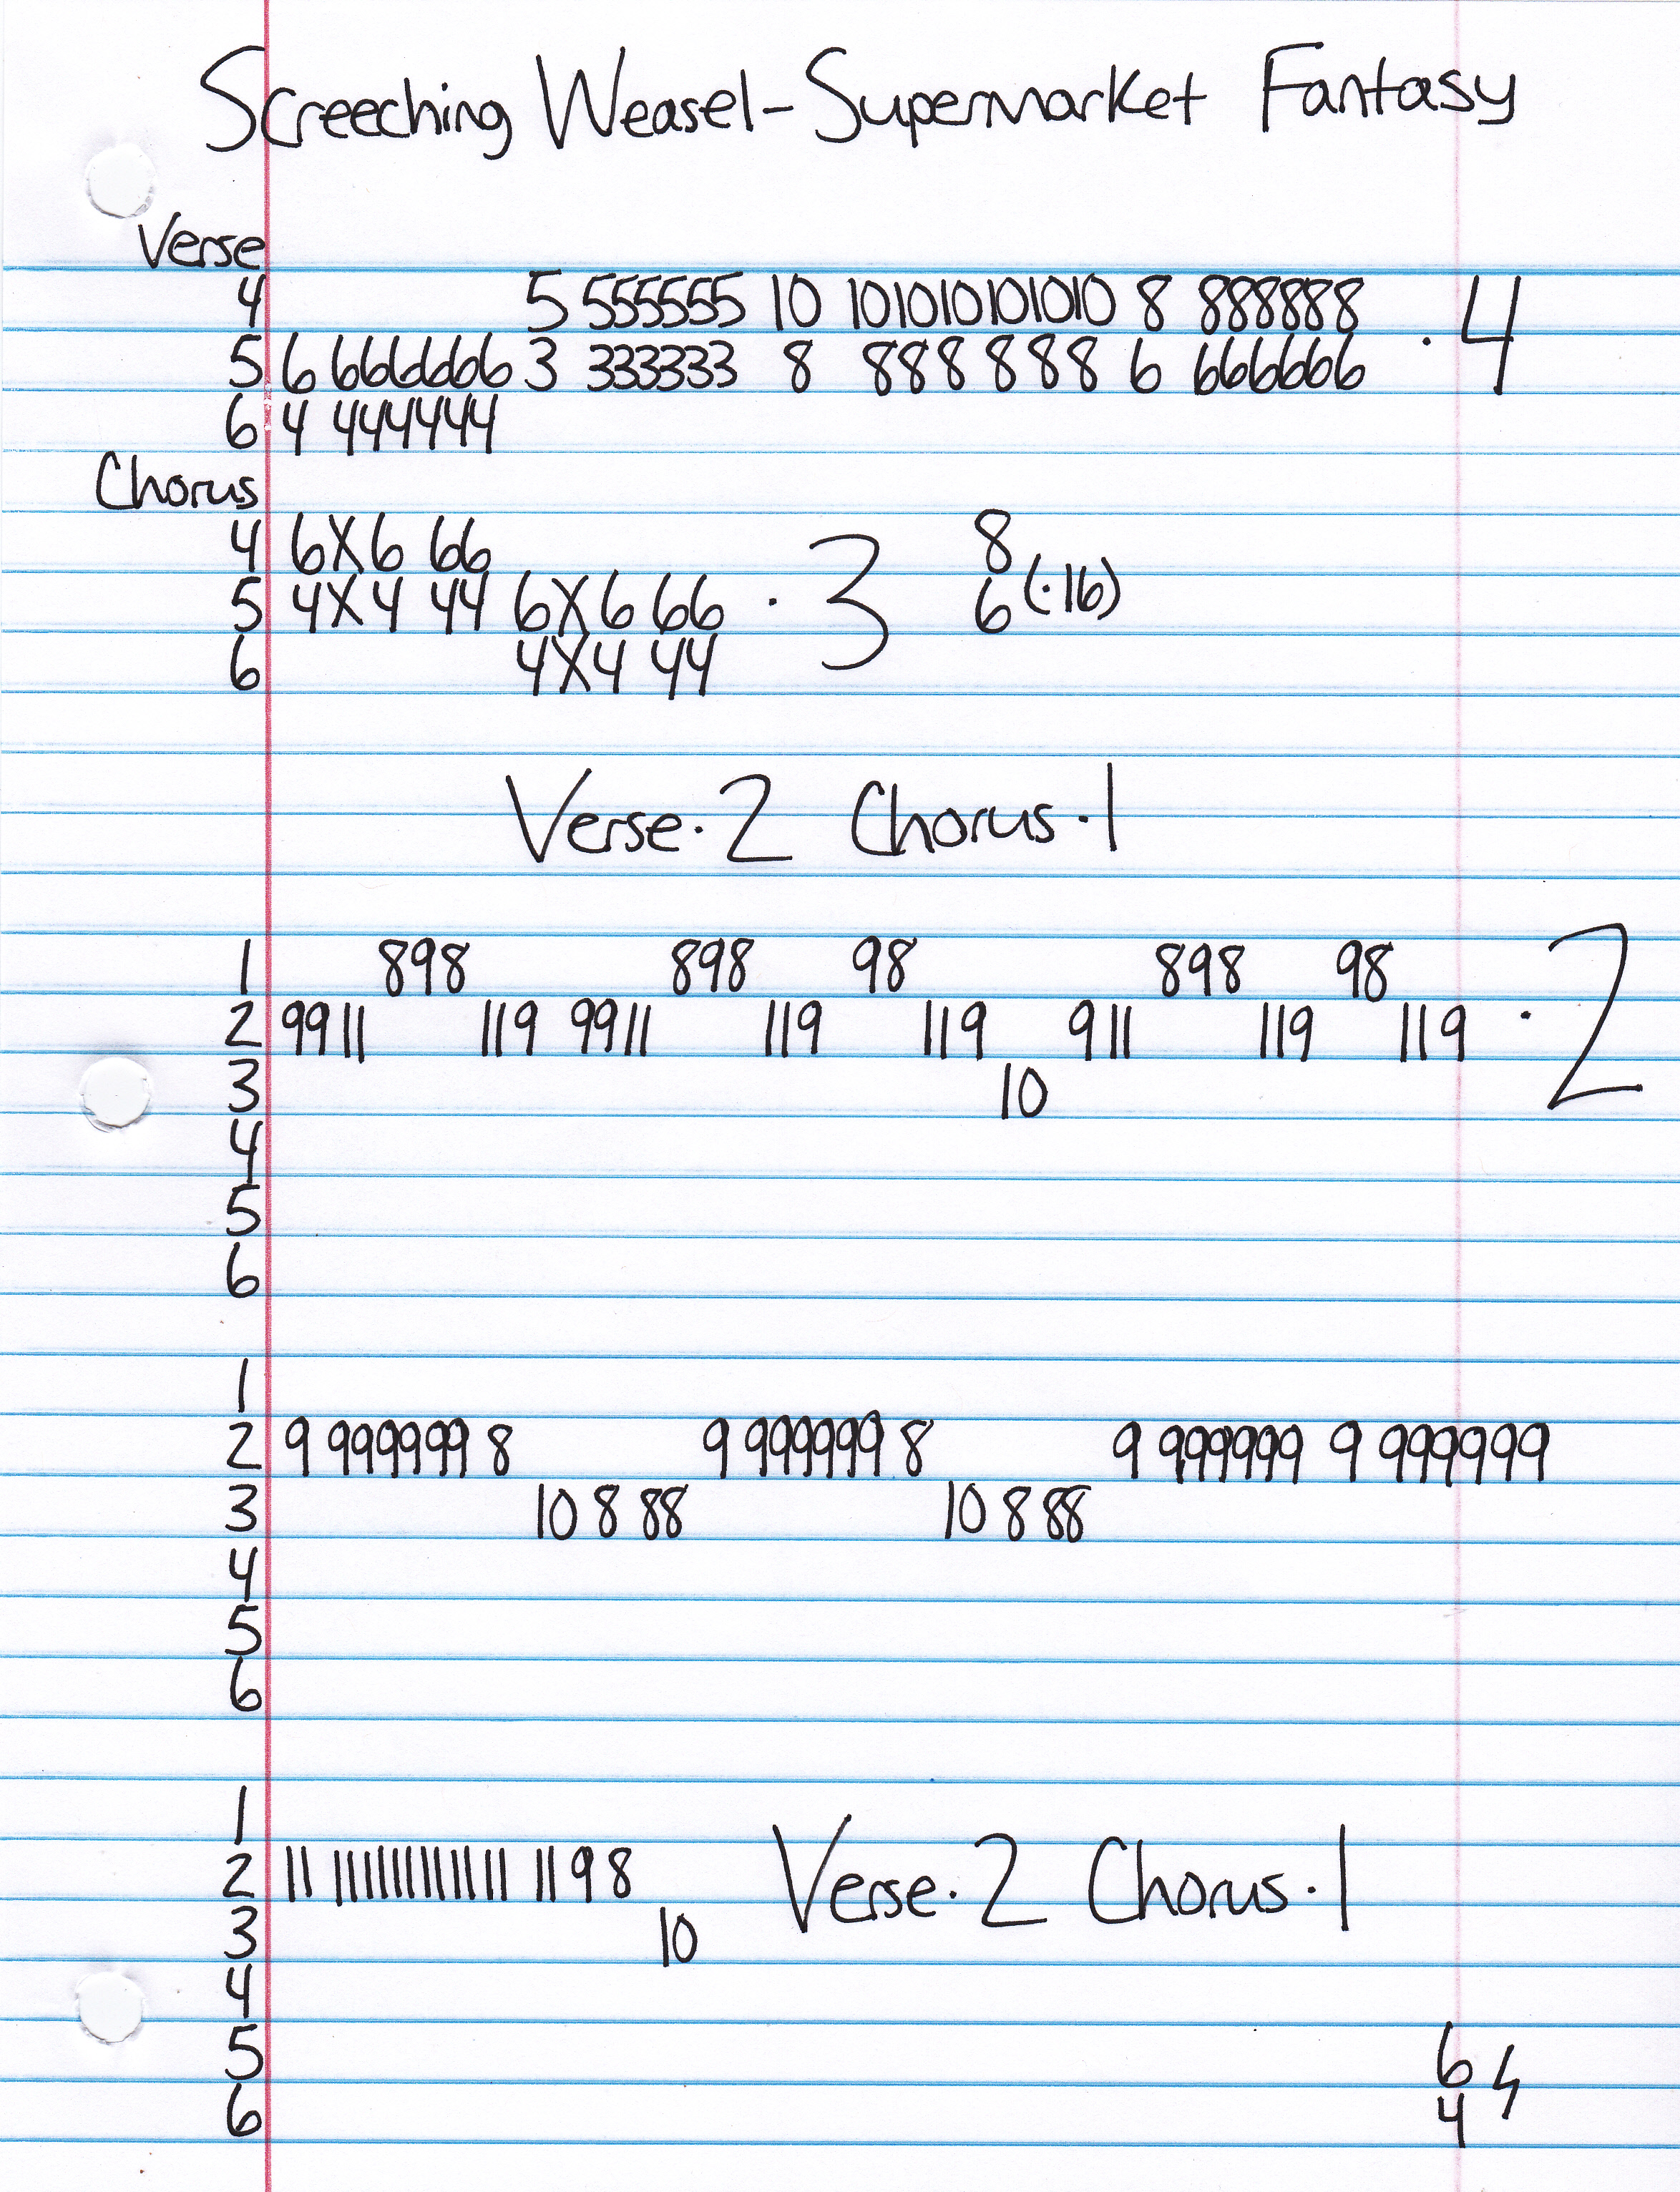 Screeching Weasel - Supermarket Fantasy
Verse
4 5 555555 10 101010101010 8 888888 · 4
5 6 666666 3 333333 8 888888 6 666666
6 4 444444
Chorus
4 6X6 66
5 4X4 44 6X6 66 · 3 8
6 4X4 44 6 (·16)
Verse · 2 Chorus · 1
1 898 898 98 898 98
2 99 11 11 9 99 11 11 9 11 9 9 11 11 9 11 9 · 2
3 10
4
5
6
1
2 9 999999 8 9 999999 8 9 999999 9 999999
3 10 8 88 10 8 88
4
5
6
1
2 11 111111111111 11 9 8 Verse · 2 Chorus · 1
3 10
4
5 6
6 4